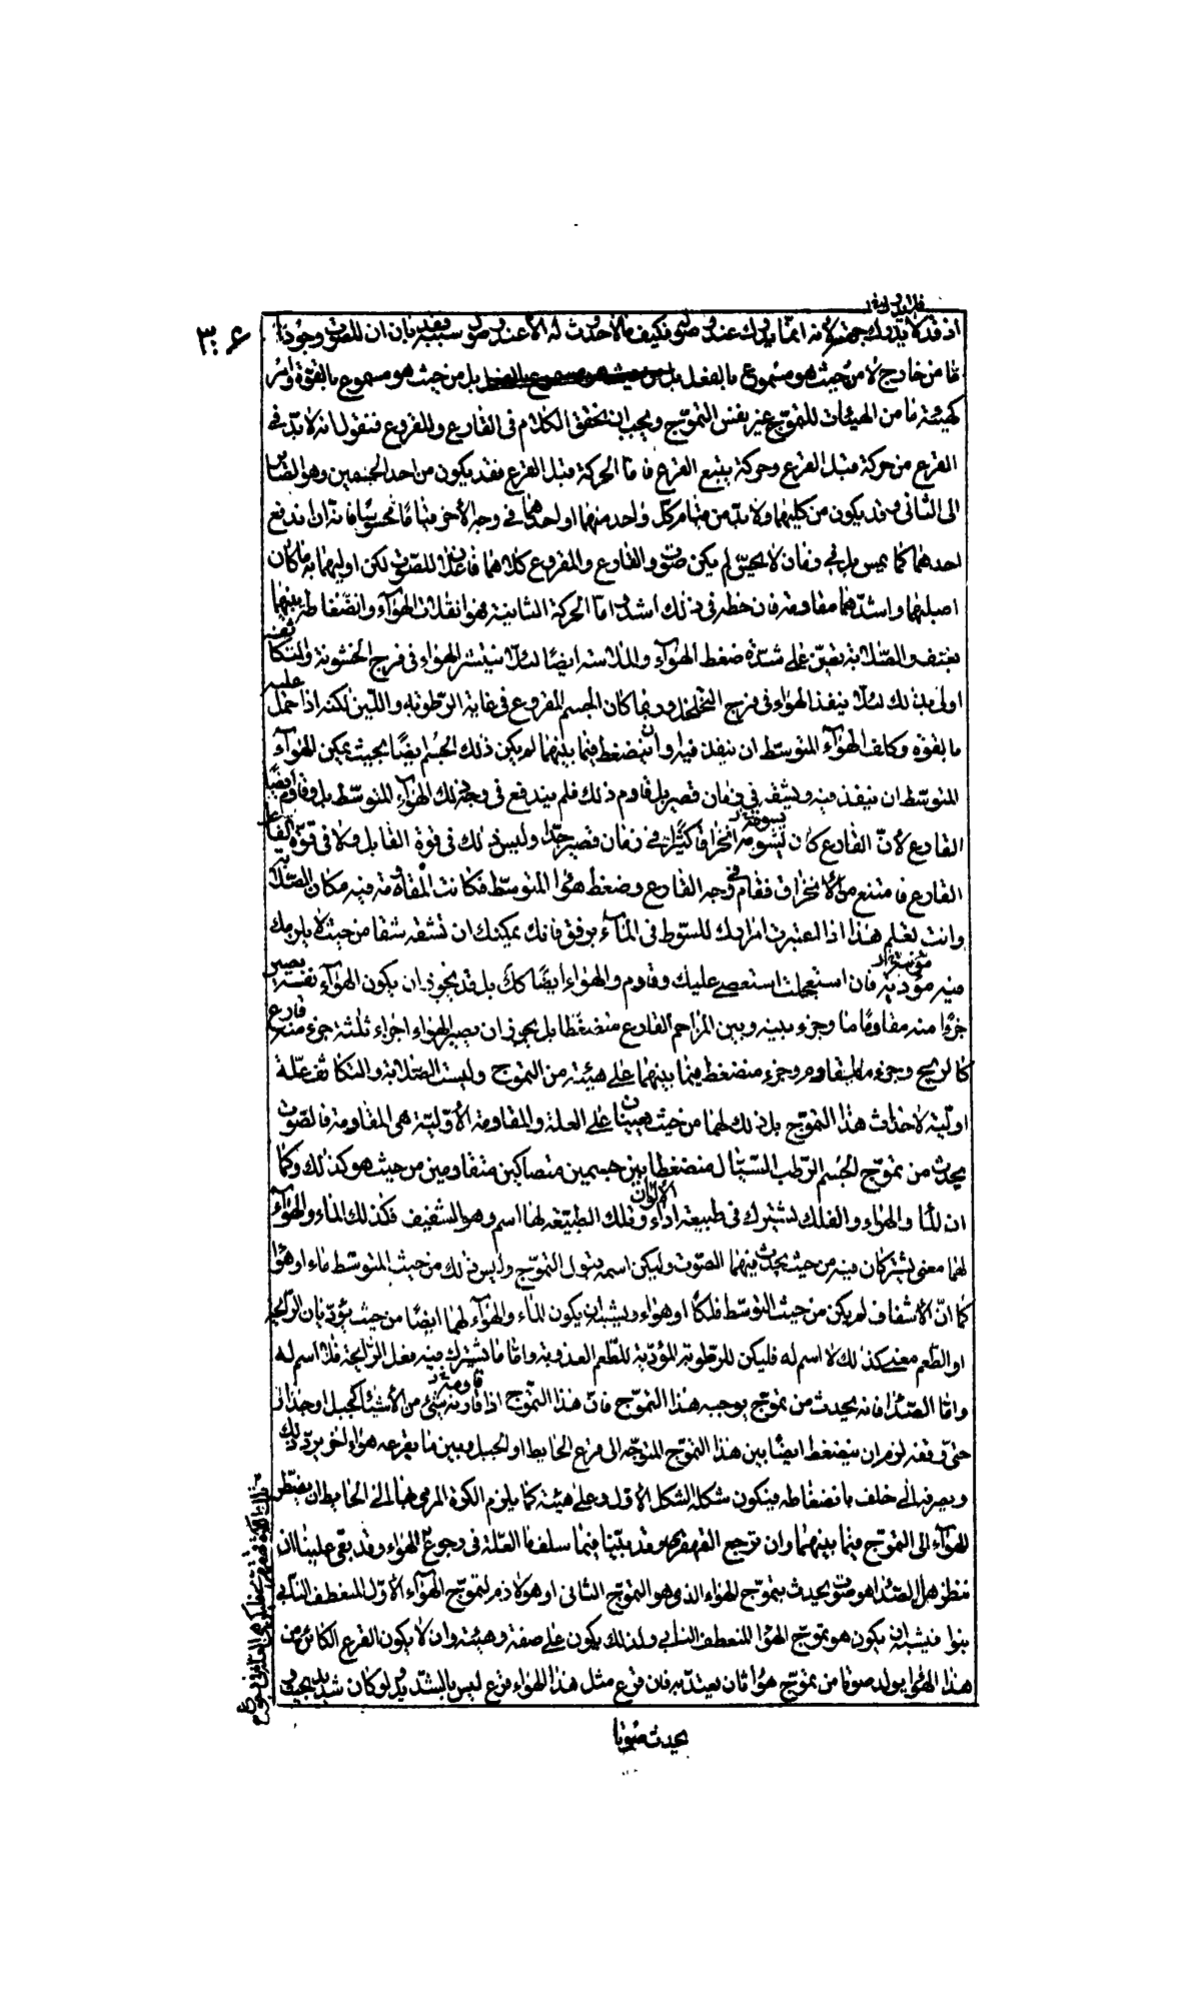 اذ قد لا يدرك جهته لأنه انما يدرك عند وصوله فكيف ما لا حدوث له الا عند وصول سببه فقد بان ان للصوت وجودا
ما من خارج لا من حيث هو مسموع بالفعل بل من حيث هو مسموع بالقوة وامر
كهيئة ما من الهيئات للتموج غير نفس التموج ويجب ان نحقق الكلام فى القارع والمقروع فنقول انه لا بد فى
القرع من حركة قبل القرع وحركة يتبع القرع فاما الحركة قبل القرع فقد يكون من احد الجسمين وهو الصاير
الى الثانى وقد يكون من كليهما ولا بد من قيام كل واحد منهما او احدهما فى وجه الأخر قياما محسوسا فانه ان اندفع
احدهما كما يمس بل فى زمان لا يحس لم يكن صوت والقارع والمقروع كلاهما فاعلان للصوت لكن اوليهما به ما كان
اصلبهما واشدهما مقاومة فان حظه فى ذلك اشد اما الحركة الثانية فهو انفلات الهوآء وانضغاطه بينهما
بعنف والصلابة يعين على شدة ضغط الهوآء والملاسة ايضا لئلا ينتشر الهواء فى فرج الخشونة والتكاثف
اولى بذلك لئلا ينفذ الهواء فى فرج التخلخل وربما كان الجسم المقروع فى غاية الرطوبة واللين لكنه اذا حمل عليه
بالقوة وكلف الهوآء المتوسط ان ينفذ فيه او ان ينضغط فيما بينهما لم يكن ذلك الجسم ايضا بحيث يمكن الهوآء
المتوسط ان ينفذ فيه ويشقه فى زمان قصير بل قاوم ذلك فلم يندفع فى وجه ذلك الهوآء المتوسط بل وقاوم ايضا
القارع لأن القارع كان يسومه انخراقا كثيرا فى زمان قصير جدا وليس ذلك فى قوة القابل ولا فى قوة الفاعل
القارع فامتنع من الانخراق فقام فى وجه القارع وضغط هوا المتوسط فكانت المقاومة فيه مكان الصلابة
وانت تعلم هذا اذا اعتبرت امرارك للسوط فى المآء برفق فانك يمكنك ان تشقه شقا من حيث لا يلزمك
فيه مؤنة فان استعجلت استعصى عليك وقاوم والهواء ايضا كك بل قد يجوز ان يكون الهوآء نفسه يصير
جزؤا منه مقاوما ما وجزء بينه وبين المزاحم القارع منضغطا بل يجوز ان يصير الهواء اجزاء ثلثة جزء منه قارع
كالريح وجزء مقاوم وجزء منضغط فيما بينهما على هيئة من التموج وليست الصلابة والتكاثف علة
اولية لاحداث هذا التموج بل ذلك لهما من حيث يعينان على العلة والمقاومة الأولية هى المقاومة فالصوت
يحدث من تموج الجسم الرطب السيال منضغطا بين جسمين متصاكين متقاومين من حيث هو كذلك وكما
ان المآء والهواء والفلك تشترك فى طبيعة اداء الألوان وتلك الطبيعة لها اسم وهو الشفيف فكذلك الماء والهوآء
لهما معنى يشتركان فيه من حيث يحدث فيهما الصوت وليكن اسمه قبول التموج وليس ذلك من حيث المتوسط ماء او هوا
كما ان الاشفاف لم يكن من حيث المتوسط فلكا او هواء ويشبه ان يكون للماء والهوآء لهما ايضا من حيث يؤديان الرايحة
او الطعم معنى كذلك لا اسم له فليكن للرطوبة المؤدية للطعم العذوبة واما ما يشترك فيه بعقل الرايحة فلا اسم له
واما الصدا فانه يحدث من تموج يوجبه هذا التموج فان هذا التموج اذا قاومه شئ من الأشياء كجبل او جدار
حتى وقفه لزم ان ينضغط ايضا بين هذا التموج المتوجه الى قرع الحايط او الجبل وبين ما يقرعه هواء اخر يرد ذلك
ويصرفه الى خلف بانضغاطه فيكون شكله الشكل الاول وعلى هيئة كما يلزم الكرة المرمى بها الى الحايط ان يضطر
الهوآء الى التموج فيما بينهما وان ترجع القهقرى وقد بينا فيما سلف ما العلة فى رجوع الهواء وقد بقى علينا ان
ننظر هل الصدا هو صوت يحدث بتموج الهواء الذى هو التموج الثانى او هو لازم لتموج الهوآء الأول المنعطف النابى
نبوا فيشبه ان يكون هو تموج الهوا المنعطف النابى ولذلك يكون على صفته وهيئته وان لا يكون القرع الكائن من
هذا الهوا يولد صوتا من تموج هوا ثان يعتد به فان قرع مثل هذا الهواء قرع ليس بالشديد ولو كان شديدا بحيث
يحدث صوتا